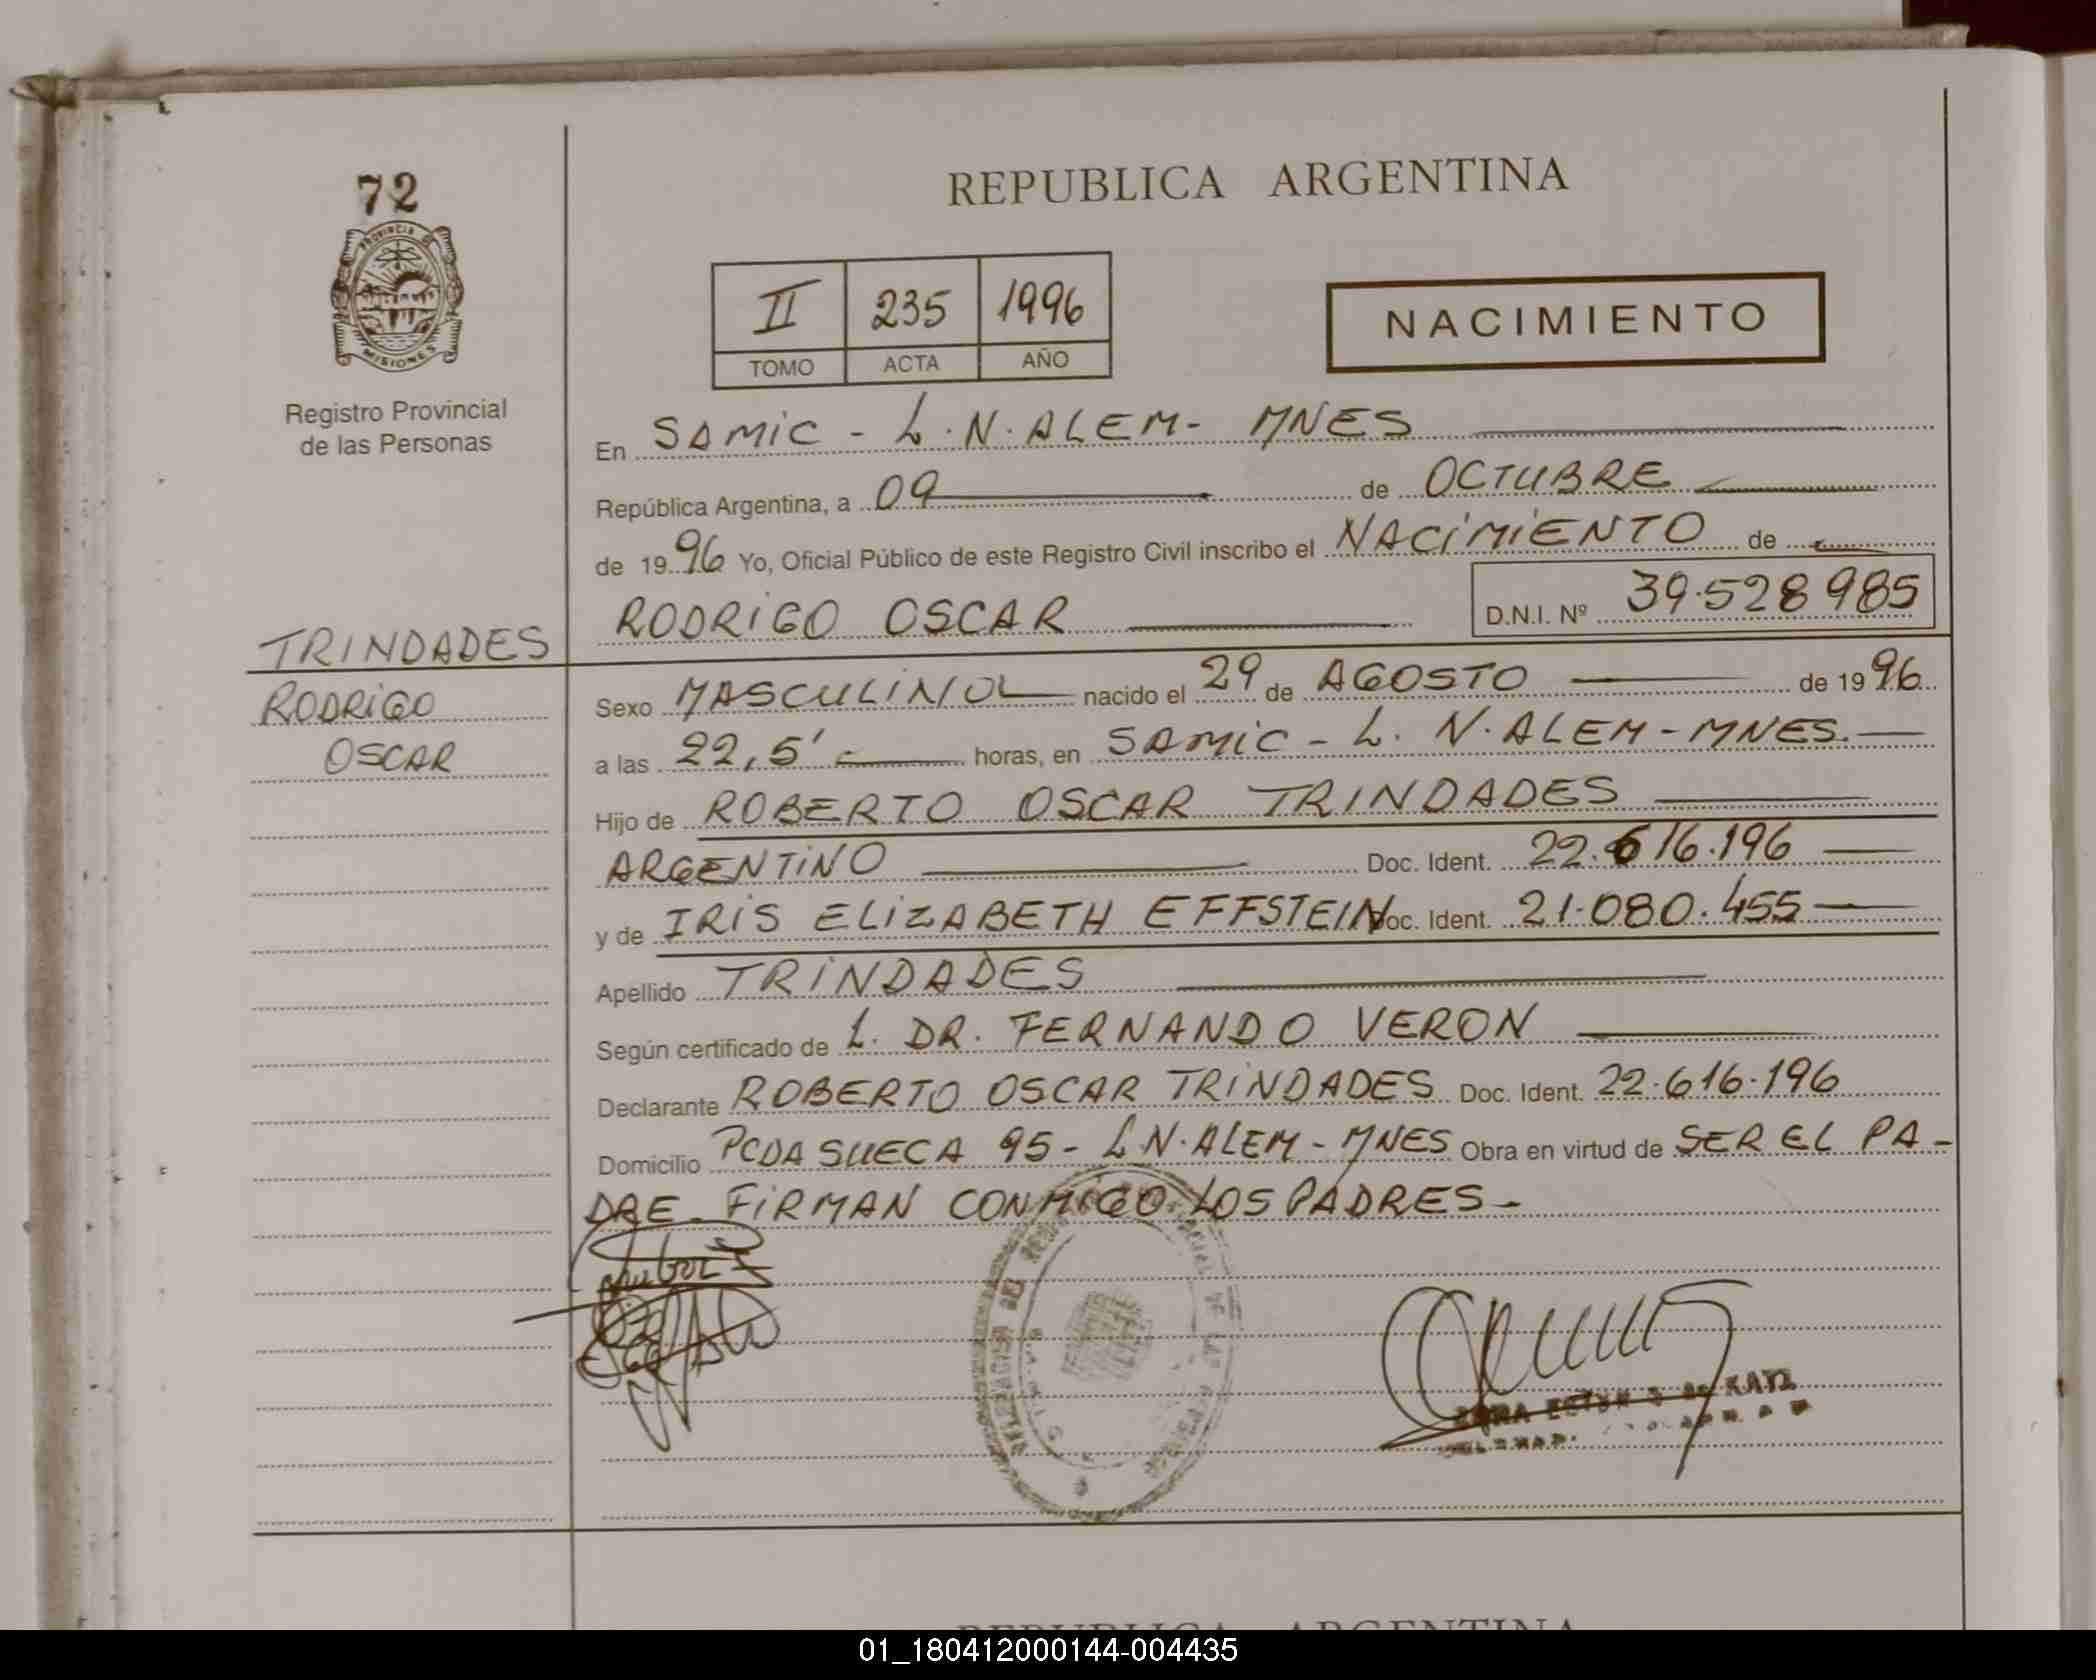 72
PROVINCIA DE
MISIONES
Registro Provincial
de las Personas
TRINDADES
RODRIGO
OSCAR
REPUBLICA ARGENTINA
II 235 1996
TOMO ACTA AÑO
NACIMIENTO
En SAMIC - L. N. ALEM - MNES
República Argentina, a 09 de OCTUBRE
de 1996 Yo, Oficial Público de este Registro Civil inscribo el NACIMIENTO de
RODRIGO OSCAR D.N.I. Nº 39.528985
Sexo MASCULINO nacido el 29 de AGOSTO de 1996
a las 22,5' horas, en SAMIC - L. N. ALEM - MNES.
Hijo de ROBERTO OSCAR TRINDADES
ARGENTINO Doc. Ident. 22.616.196
y de IRIS ELIZABETH EFFSTEIN Doc. Ident. 21.080.455
Apellido TRINDADES
Según certificado de L. DR. FERNANDO VERON
Declarante ROBERTO OSCAR TRINDADES Doc. Ident. 22.616.196
Domicilio PCDA SUECA 95 - L.N. ALEM - MNES Obra en virtud de SER EL PA-
DRE. FIRMAN CONMIGO LOS PADRES -
REPUBLICA ARGENTINA
01_180412000144-004435